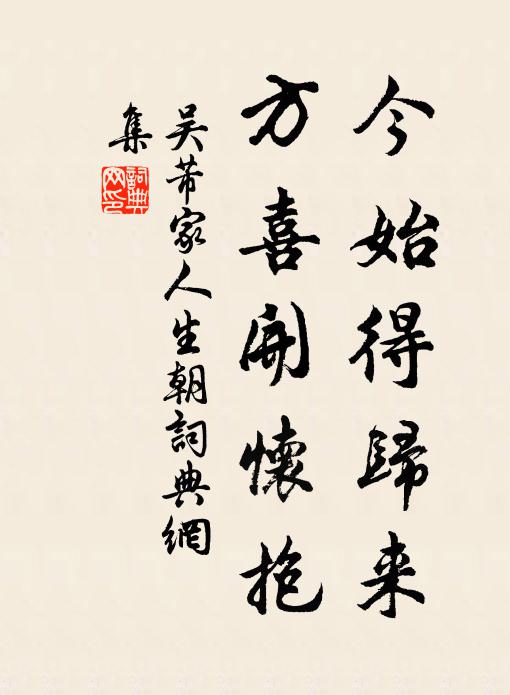 今始得歸来
方喜開懷抱
吴芾家人生朝詞典網
集
詞典網印